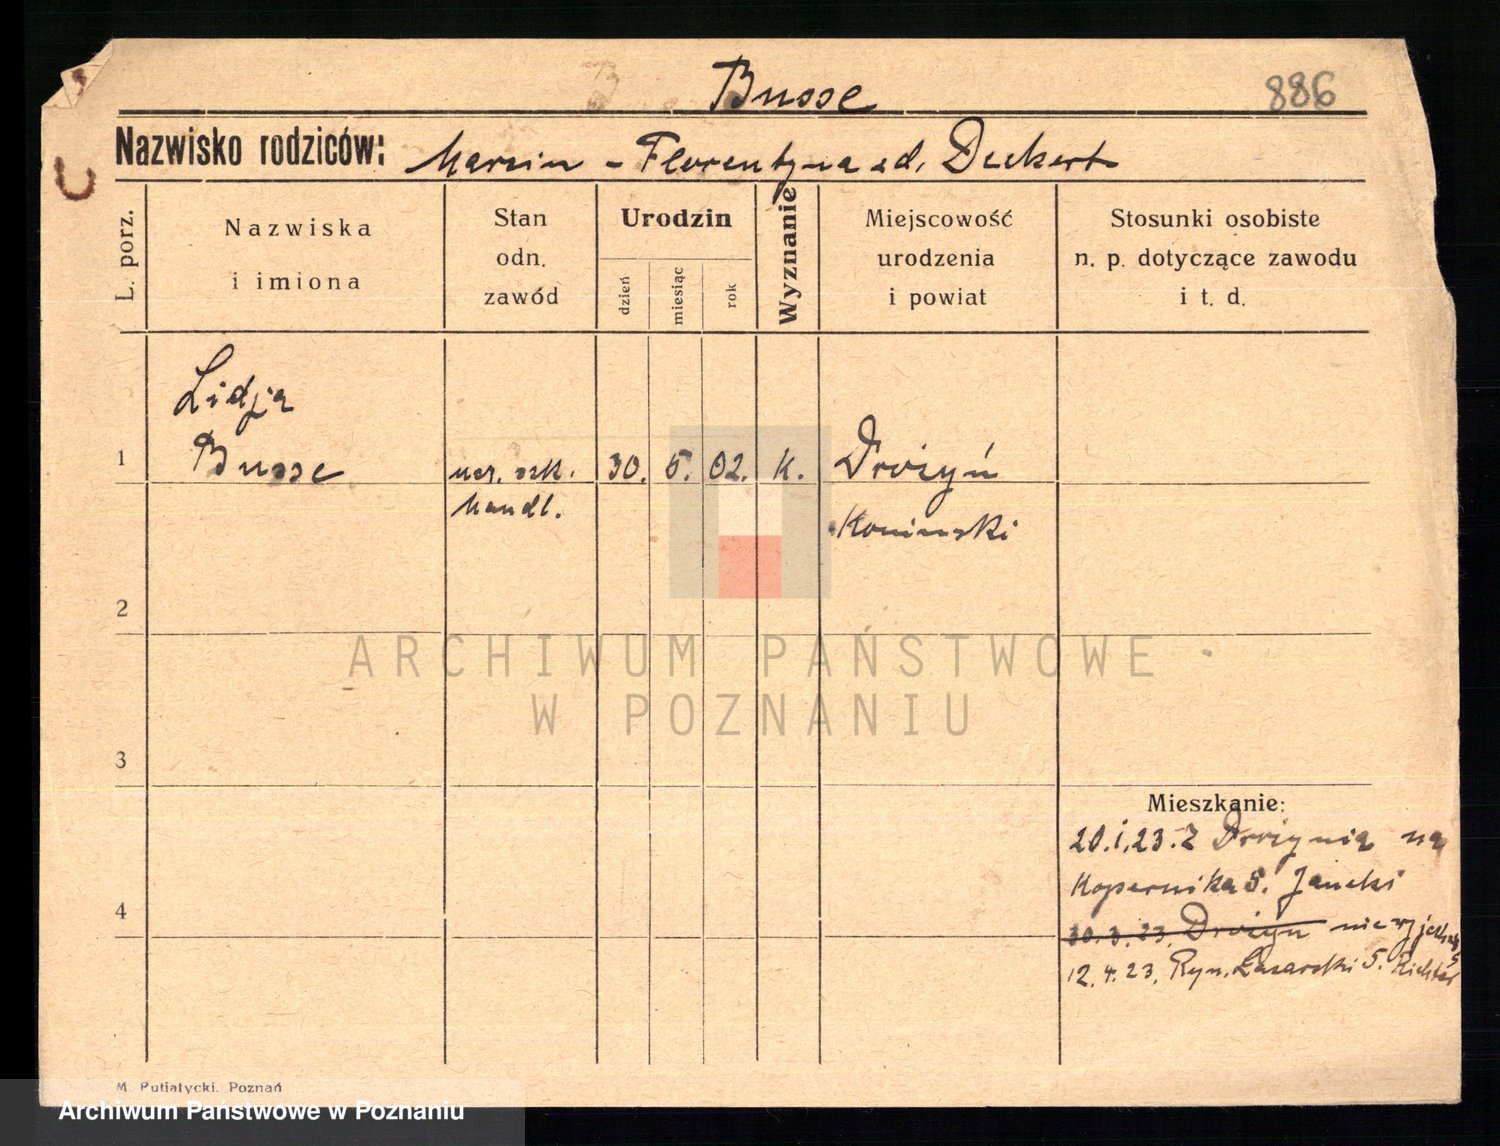 Busse
886
Nazwisko rodziców: Marcin - Florentyna zd. Deckert
L. porz.
Nazwiska
i imiona
Stan
odn.
zawód
Urodzin
dzień
miesiąc
rok
Wyznanie
Miejscowość
urodzenia
i powiat
Stosunki osobiste
n. p. dotyczące zawodu
i t. d.
Lidja
1 Busse ucz. szk. 30. 5. 02. K. Drożyń
handl. Koninski
2
ARCHIWUM PAŃSTWOWE
W POZNANIU
3
Mieszkanie:
20.1.23. z Drożynia na
Kopernika 5. Janecki
4
30.3.23. Drożyn nie wyjechała
12.4.23. Ryn. Łazarski 5. Richter
M. Putiatycki, Poznań
Archiwum Państwowe w Poznaniu